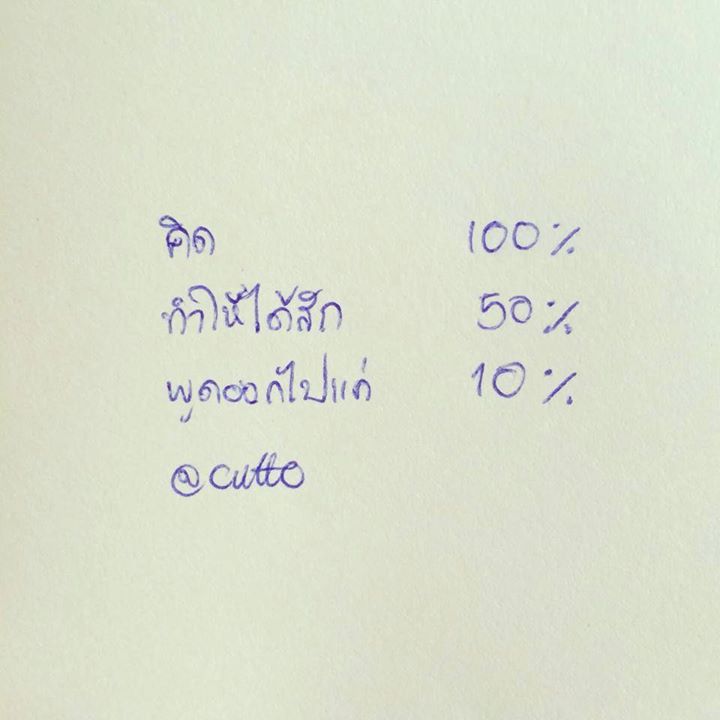 คิด 100%
ทำให้ได้สัก 50%
พูดออกไปแค่ 10%
@cutto